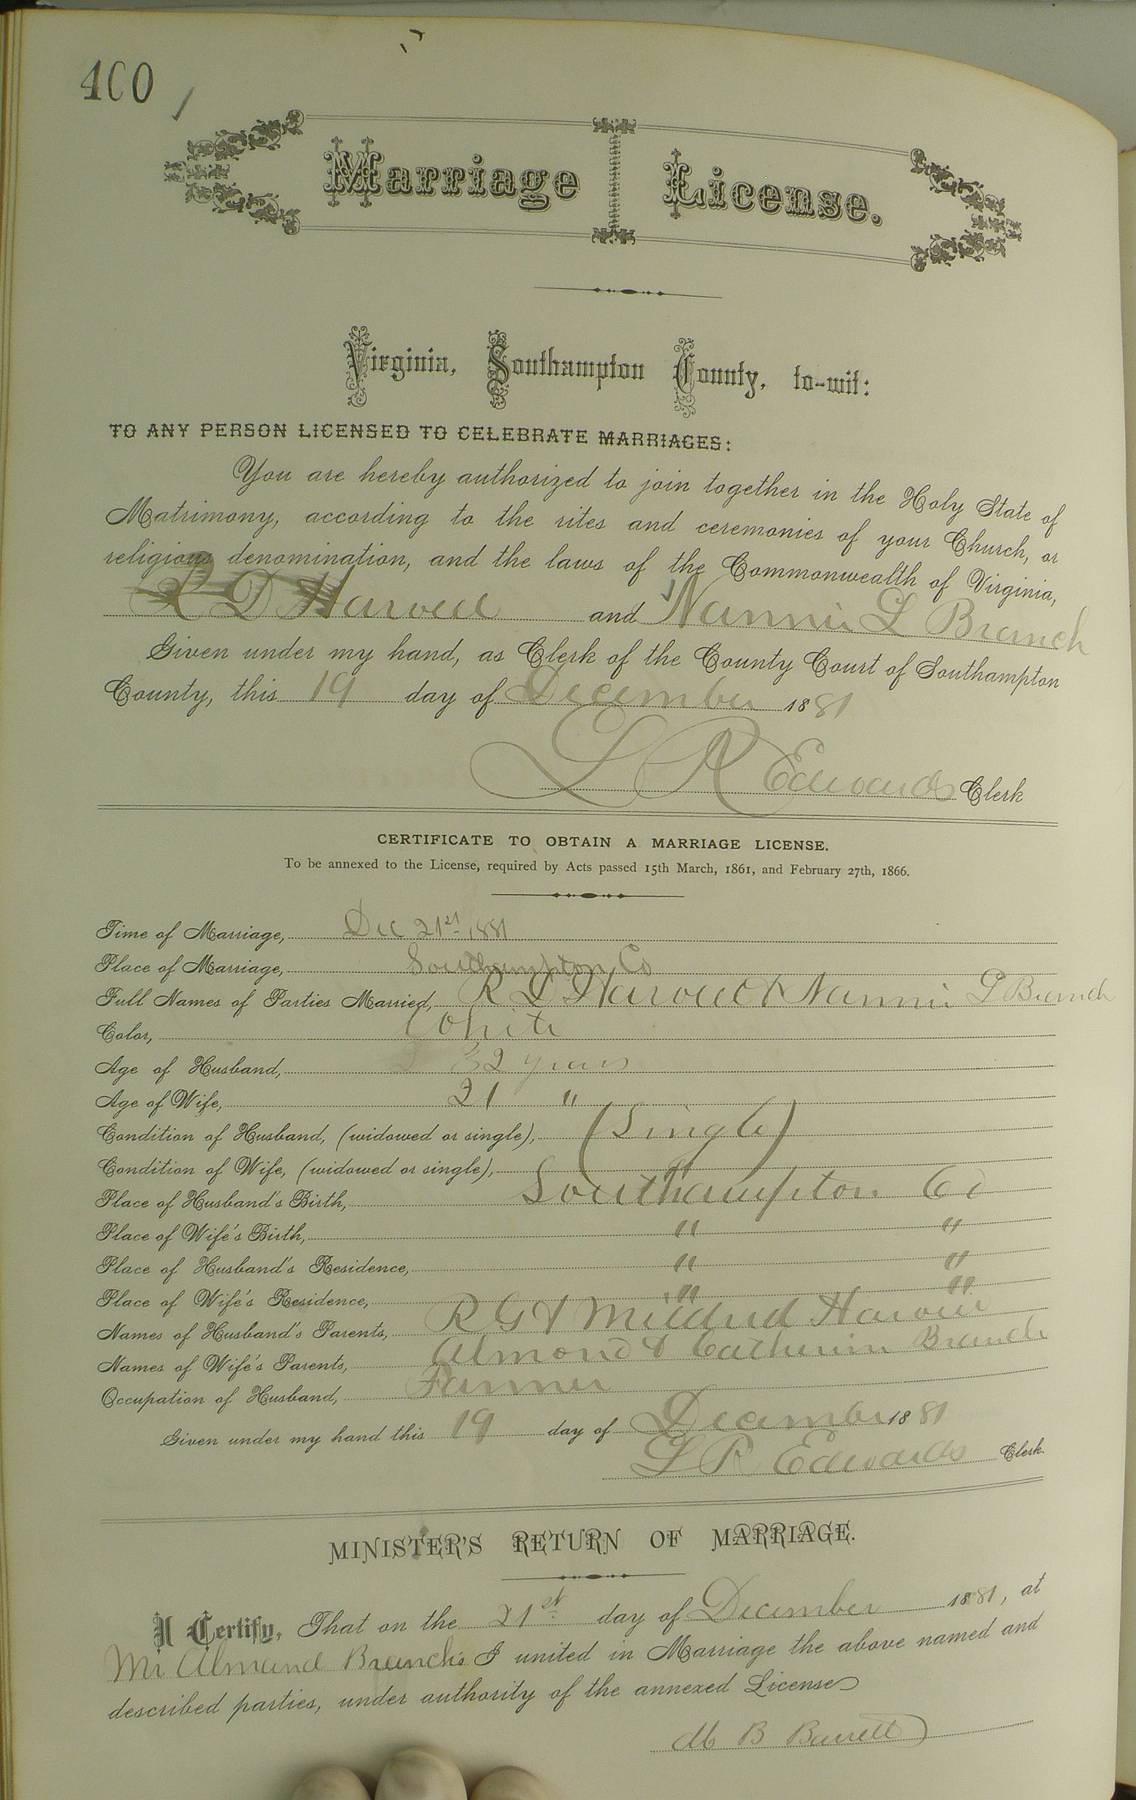 400
Marriage License.
Virginia, Southampton County, to-wit:
TO ANY PERSON LICENSED TO CELEBRATE MARRIAGES:
You are hereby authorized to join together in the Holy State of
Matrimony, according to the rites and ceremonies of your Church, or
religious denomination, and the laws of the Commonwealth of Virginia,
D and Nannie L Branch
Given under my hand, as Clerk of the County Court of Southampton
County, this 19 day of December 1881
L R Edwards Clerk
CERTIFICATE TO OBTAIN A MARRIAGE LICENSE.
To be annexed to the License, required by Acts passed 15th March, 1861, and February 27th, 1866.
Time of Marriage, Dec 21st 1881
Place of Marriage, Southampton Co
Full Names of Parties Married, & Nannie L Branch
Color, White
Age of Husband, 32 years
Age of Wife, 21 "
Condition of Husband, (widowed or single), (Single)
Condition of Wife, (widowed or single), "
Place of Husband's Birth, Southampton Co
Place of Wife's Birth, " "
Place of Husband's Residence, " "
Place of Wife's Residence, " "
Names of Husband's Parents, R G & Mildred
Names of Wife's Parents, Almond & Catherine Branch
Occupation of Husband, Farmer
Given under my hand this 19 day of December 1881
L R Edwards Clerk
MINISTER'S RETURN OF MARRIAGE.
I Certify, That on the 21st day of December 1881, at
Mr Almand Branch's I united in Marriage the above named and
described parties, under authority of the annexed License
M B Barrett